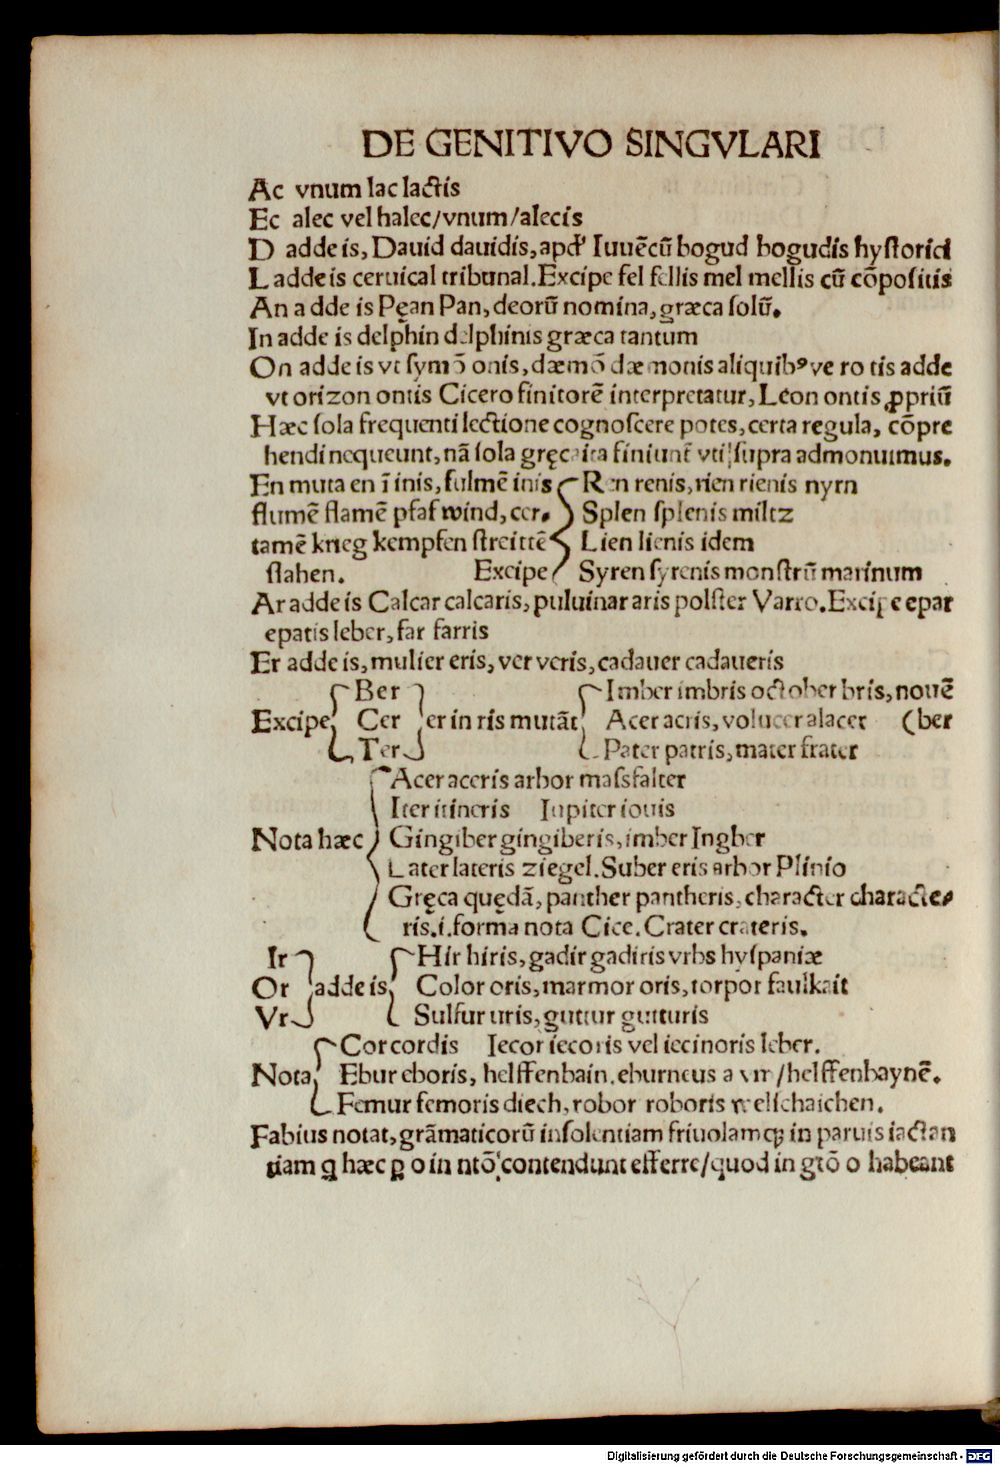 DE GENITIVO SINGVLARI
Ac vnum lac lactis
Ec alec vel halec/vnum/alecis
D adde is, Dauid dauidis, apd' Iuuēcū bogud bogudis hystorici
L adde is ceruical tribunal. Excipe fel fellis mel mellis cū cōpositis
An adde is Pęan Pan, deorū nomina, græca solū.
In adde is delphin delphinis græca tantum
On adde is vt symō onis, dæmō dæmonis aliquibꝰ ve ro tis adde
vt orizon ontis Cicero finitorē interpretatur, Leon ontis ꝓpriū
Hæc sola frequenti lectione cognoscere potes, certa regula, cōpre
hendi nequeunt, nā sola gręca ita finiunt vti supra admonuimus.
En muta en ī inis, fulmē inis Ren renis, rien rienis nyrn
flumē flamē pfaf wind, cer Splen splenis miltz
tamē krieg kempfen streittē Lien lienis idem
slahen. Excipe Syren syrenis monstrū marinum
Ar adde is Calcar calcaris, puluinar aris polster Varro. Excipe epar
epatis leber, far farris
Er adde is, mulier eris, ver veris, cadauer cadaueris
Ber Imber imbris october bris, nouē
Excipe Cer er in ris mutāt Acer acris, volucer alacer (ber
Ter Pater patris, mater frater
Acer aceris arbor massfalter
Iter itineris Iupiter iouis
Nota hæc Gingiber gingiberis, imber Ingber
Later lateris ziegel. Suber eris arbor Plinio
Gręca quędā, panther pantheris, character characte
ris. i. forma nota Cice. Crater crateris.
Ir Hir hiris, gadir gadiris vrbs hyspaniæ
Or adde is Color oris, marmor oris, torpor faulkait
Vr Sulfur uris, guttur gutturis
Cor cordis Iecor iecoris vel iecinoris leber.
Nota Ebur eboris, helffenbain. eburneus a vm/helffenbaynē.
Femur femoris diech, robor roboris welschaichen.
Fabius notat, grāmaticorū insolentiam friuolamqꝫ in paruis iactan
tiam ꝗ hæc ꝑ o in ntō contendunt efferre/quod in gtō o habeant
Digitalisierung gefördert durch die Deutsche Forschungsgemeinschaft - DFG